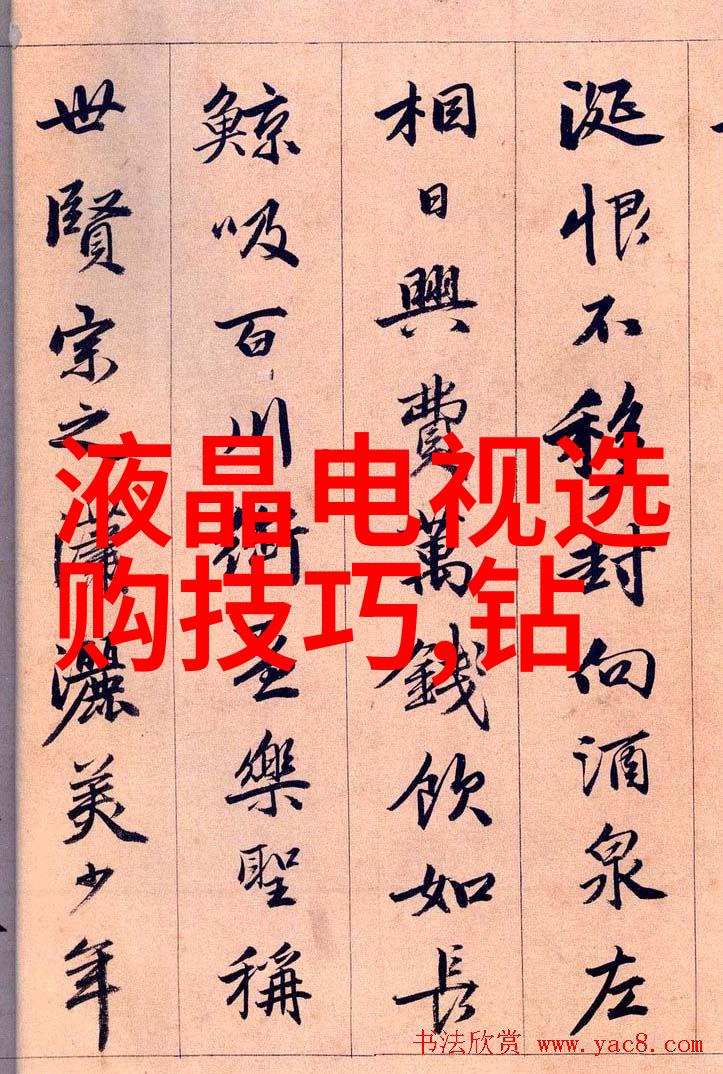 涎恨不移封向酒泉左
相日興費萬錢飲如長
鯨吸百川銜盃樂聖稱
世賢宗之瀟灑美少年
液晶电视选
购技巧,钻
书法欣赏 www.yac8.com